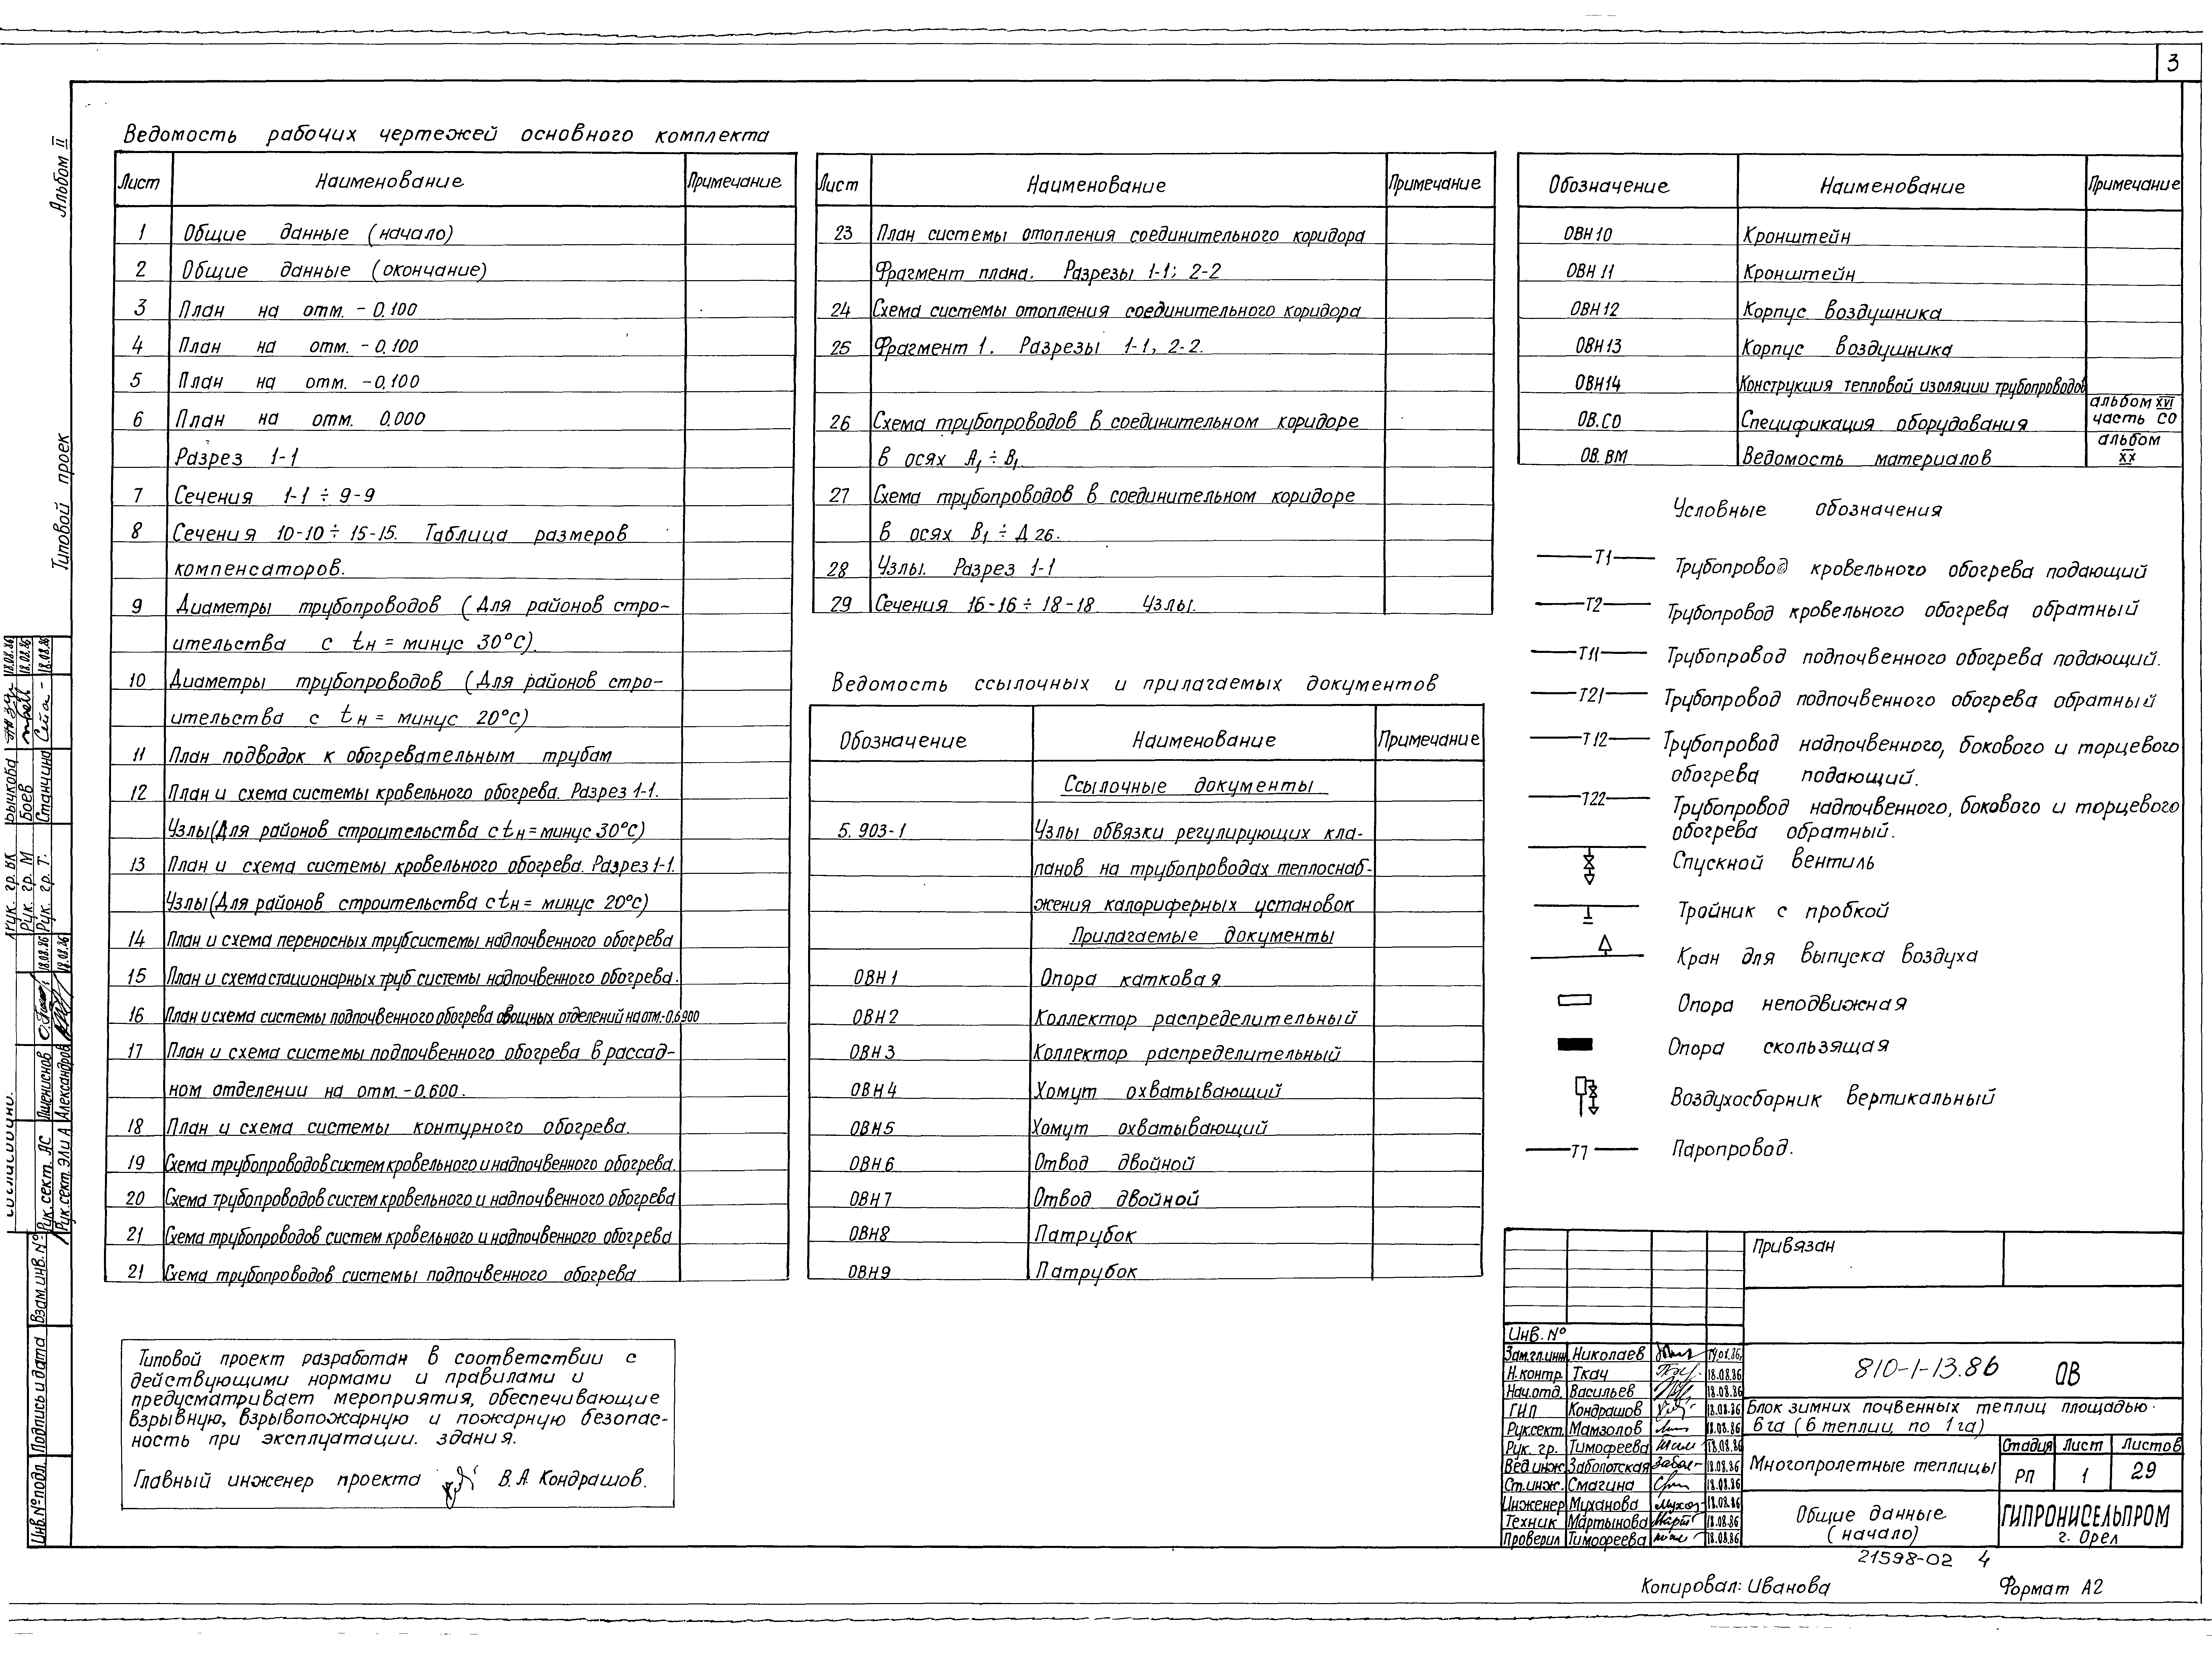 3
Альбом II
Типовой проек
Ведомость рабочих чертежей основного комплекта
Лист Наименование Примечание
1 Общие данные (начало)
2 Общие данные (окончание)
3 План на отм. -0.100
4 План на отм. -0.100
5 План на отм. -0.100
6 План на отм. 0.000
Разрез 1-1
7 Сечения 1-1 ÷ 9-9
8 Сечения 10-10 ÷ 15-15. Таблица размеров
компенсаторов.
9 Диаметры трубопроводов (Для районов стро-
ительства с tн = минус 30°С).
10 Диаметры трубопроводов (Для районов стро-
ительства с tн = минус 20°С)
11 План подводок к обогревательным трубам
12 План и схема системы кровельного обогрева. Разрез 1-1.
Узлы (Для районов строительства с tн = минус 30°С)
13 План и схема системы кровельного обогрева. Разрез 1-1.
Узлы (Для районов строительства с tн = минус 20°С)
14 План и схема переносных труб системы надпочвенного обогрева
15 План и схема стационарных труб системы надпочвенного обогрева.
16 План и схема системы подпочвенного обогрева овощных отделений на отм.-0.6.900
17 План и схема системы подпочвенного обогрева в рассад-
ном отделении на отм. -0.600.
18 План и схема системы контурного обогрева.
19 Схема трубопроводов систем кровельного и надпочвенного обогрева.
20 Схема трубопроводов систем кровельного и надпочвенного обогрева
21 Схема трубопроводов систем кровельного и надпочвенного обогрева
21 Схема трубопроводов системы подпочвенного обогрева
Лист Наименование Примечание
23 План системы отопления соединительного коридора
Фрагмент плана. Разрезы 1-1; 2-2
24 Схема системы отопления соединительного коридора
25 Фрагмент 1. Разрезы 1-1, 2-2.
26 Схема трубопроводов в соединительном коридоре
в осях А1 ÷ В1
27 Схема трубопроводов в соединительном коридоре
в осях В1 ÷ Д 26.
28 Узлы. Разрез 1-1
29 Сечения 16-16 ÷ 18-18 Узлы.
Ведомость ссылочных и прилагаемых документов
Обозначение Наименование Примечание
Ссылочные документы
5.903-1 Узлы обвязки регулирующих кла-
панов на трубопроводах теплоснаб-
жения калориферных установок
Прилагаемые документы
ОВН 1 Опора катковая
ОВН 2 Коллектор распределительный
ОВН 3 Коллектор распределительный
ОВН 4 Хомут охватывающий
ОВН 5 Хомут охватывающий
ОВН 6 Отвод двойной
ОВН 7 Отвод двойной
ОВН8 Патрубок
ОВН9 Патрубок
Обозначение Наименование Примечание
ОВН 10 Кронштейн
ОВН 11 Кронштейн
ОВН 12 Корпус воздушника
ОВН13 Корпус воздушника
ОВН14 Конструкция тепловой изоляции трубопроводов
ОВ.СО Спецификация оборудования альбом XVI часть СО
ОВ.ВМ Ведомость материалов альбом XX
Условные обозначения
Т1 Трубопровод кровельного обогрева подающий
Т2 Трубопровод кровельного обогрева обратный
Т11 Трубопровод подпочвенного обогрева подающий.
Т21 Трубопровод подпочвенного обогрева обратный
Т12 Трубопровод надпочвенного, бокового и торцевого
обогрева подающий.
Т22 Трубопровод надпочвенного, бокового и торцевого
обогрева обратный.
Спускной вентиль
Тройник с пробкой
Кран для выпуска воздуха
Опора неподвижная
Опора скользящая
Воздухосборник вертикальный
Т7 Паропровод.
Типовой проект разработан в соответствии с
действующими нормами и правилами и
предусматривает мероприятия, обеспечивающие
взрывную, взрывопожарную и пожарную безопас-
ность при эксплуатации. здания.
Главный инженер проекта В.А. Кондрашов.
Привязан
Инв. №
Зам.гл.инж. Николаев
Н.контр. Ткач 18.08.86
Нач.отд. Васильев 18.08.86
ГИП Кондрашов 18.08.86
Рук.сект. Мамзолов 18.08.86
Рук. гр. Тимофеева 18.08.86
Вед.инж. Заболотская 18.08.86
Ст.инж. Смагина 18.08.86
Инженер Муханова 18.08.86
Техник Мартынова 18.08.86
Проверил Тимофеева 18.08.86
810-1-13.86 ОВ
Блок зимних почвенных теплиц площадью
6 га (6 теплиц по 1 га)
Многопролетные теплицы
Стадия Лист Листов
РП 1 29
Общие данные
(начало)
ГИПРОНИСЕЛЬПРОМ
г. Орел
21598-02 4
Копировал: Иванова
Формат А2
Рук. гр. ВК 18.08.86
Рук. гр. М Боев 18.08.86
Рук. гр. Т. Станчина 18.08.86
Рук. сект. АС Пшениснов 18.08.86
Рук. сект. ЭЛ и А Александров 18.08.86
Взам. инв. №
Подпись и дата
Инв. № подл.